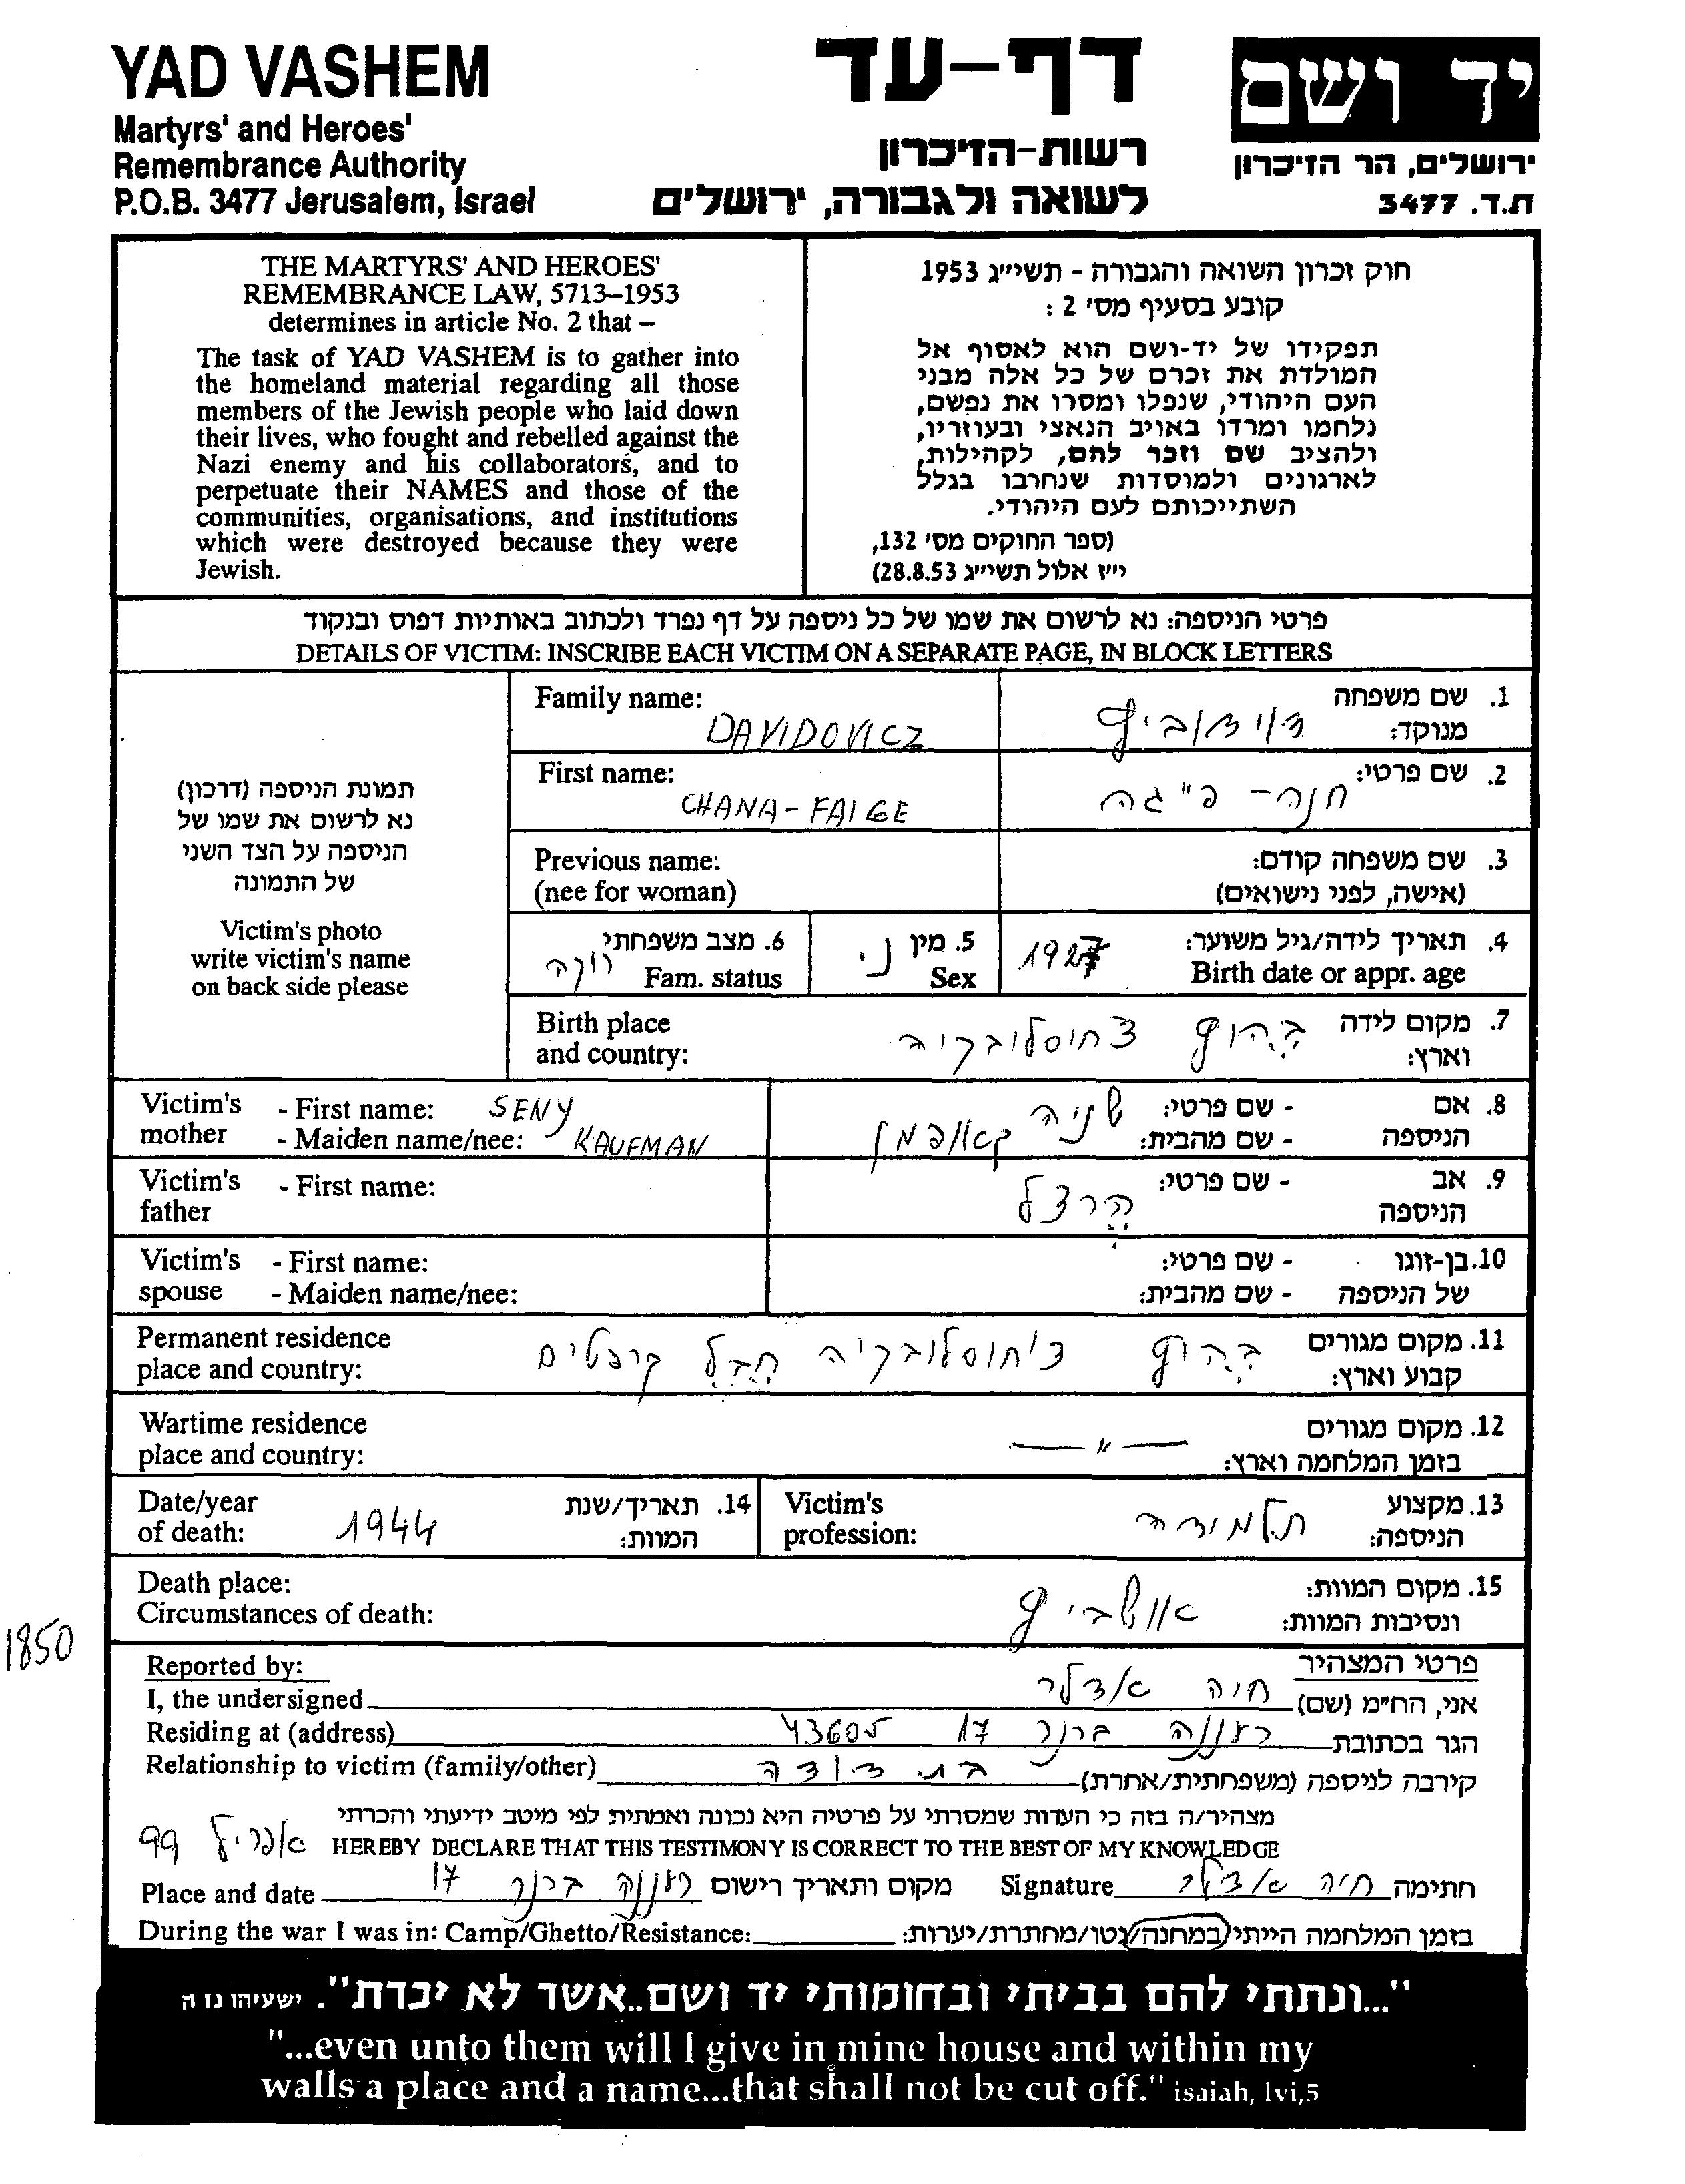 YAD VASHEM
Martyrs' and Heroes'
Remembrance Authority
P.O.B. 3477 Jerusalem, Israel
דף-עד
רשות-הזיכרון
לשואה ולגבורה, ירושלים
יד ושם
ירושלים, הר הזיכרון
ת.ד. 3477
THE MARTYRS' AND HEROES'
REMEMBRANCE LAW, 5713–1953
determines in article No. 2 that –
The task of YAD VASHEM is to gather into
the homeland material regarding all those
members of the Jewish people who laid down
their lives, who fought and rebelled against the
Nazi enemy and his collaborators, and to
perpetuate their NAMES and those of the
communities, organisations, and institutions
which were destroyed because they were
Jewish.
חוק זכרון השואה והגבורה - תשי״ג 1953
קובע בסעיף מס' 2 :
תפקידו של יד-ושם הוא לאסוף אל
המולדת את זכרם של כל אלה מבני
העם היהודי, שנפלו ומסרו את נפשם,
נלחמו ומרדו באויב הנאצי ובעוזריו,
ולהציב שם וזכר להם, לקהילות,
לארגונים ולמוסדות שנחרבו בגלל
השתייכותם לעם היהודי.
(ספר החוקים מס' 132,
י״ז אלול תשי״ג 28.8.53)
פרטי הניספה: נא לרשום את שמו של כל ניספה על דף נפרד ולכתוב באותיות דפוס ובנקוד
DETAILS OF VICTIM: INSCRIBE EACH VICTIM ON A SEPARATE PAGE, IN BLOCK LETTERS
תמונת הניספה (דרכון)
נא לרשום את שמו של
הניספה על הצד השני
של התמונה
Victim's photo
write victim's name
on back side please
Family name: DAVIDOVICZ
1. שם משפחה מנוקד: דוידוביץ
First name: CHANA-FAIGE
2. שם פרטי: חנה- פייגה
Previous name:
(nee for woman)
3. שם משפחה קודם:
(אישה, לפני נישואים)
4. תאריך לידה/גיל משוער: 1927
Birth date or appr. age
5. מין נ.
Sex
6. מצב משפחתי רווקה
Fam. status
Birth place
and country:
7. מקום לידה וארץ: צ'כוסלובקיה
Victim's mother
- First name: SENY
- Maiden name/nee: KAUFMAN
8. אם הניספה
- שם פרטי: שניה
- שם מהבית: קאופמן
Victim's father - First name:
9. אב הניספה - שם פרטי: הרצל
Victim's spouse
- First name:
- Maiden name/nee:
10. בן-זוגו של הניספה
- שם פרטי:
- שם מהבית:
Permanent residence
place and country:
11. מקום מגורים קבוע וארץ: צ'כוסלובקיה חבל קרפטים
Wartime residence
place and country:
12. מקום מגורים
בזמן המלחמה וארץ: — " —
Date/year
of death: 1944
14. תאריך/שנת
המוות:
Victim's
profession:
13. מקצוע
הניספה: תלמידה
Death place:
Circumstances of death:
15. מקום המוות:
ונסיבות המוות: אושביץ
1850
Reported by:
פרטי המצהיר
I, the undersigned
אני, הח״מ (שם) חיה אדלר
Residing at (address)
הגר בכתובת רעננה ברנר 17 43605
Relationship to victim (family/other)
קירבה לניספה (משפחתית/אחרת) בת דודה
מצהיר/ה בזה כי העדות שמסרתי על פרטיה היא נכונה ואמתית לפי מיטב ידיעתי והכרתי
HEREBY DECLARE THAT THIS TESTIMONY IS CORRECT TO THE BEST OF MY KNOWLEDGE
אפריל 99
Place and date
מקום ותאריך רישום רעננה ברנר 17
Signature
חתימה חיה אדלר
During the war I was in: Camp/Ghetto/Resistance:
בזמן המלחמה הייתי במחנה/גטו/מחתרת/יערות:
"...ונתתי להם בביתי ובחומותי יד ושם..אשר לא יכרת". ישעיהו נז ה
"...even unto them will I give in mine house and within my
walls a place and a name...that shall not be cut off." isaiah, lvi,5